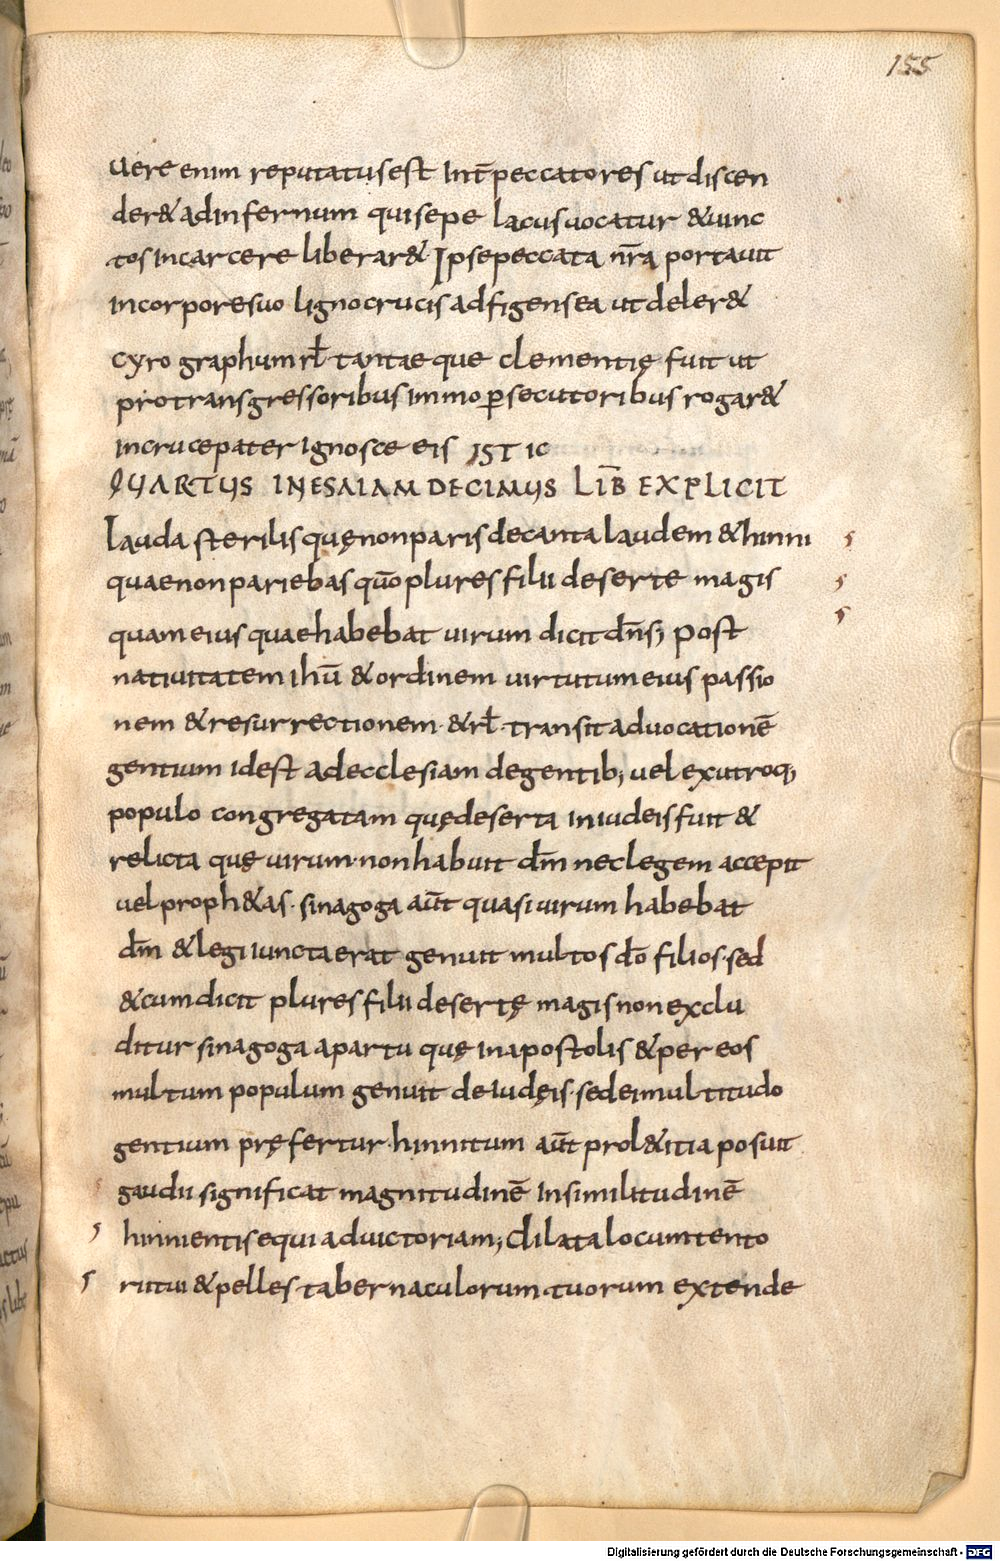 155
uere enim reputatus est int̄ peccatores ut discen
der& ad infernum qui sepe lacus uocatur & uinc
tos in carcere liberar& Ipse peccata nr̄a portauit
in corpore suo ligno crucis adfigens ea ut deler&
cyrographum rł tantaeque clementię fuit ut
pro transgressoribus immo ꝑsecutoribus rogar&
in cruce pater ignosce eis IST IC
QUARTUS IN ESAIAM DECIMUS LIB̄ EXPLICIT
Lauda sterilis quę non paris decanta laudem & hinni
quae non pariebas qūo plures filii deserte magis
quam eius quae habebat uirum dicit dn̄s; Post
natiuitatem ihū & ordinem uirtutum eius passio
nem & resurrectionem · & rł · transit ad uocationē
gentium idest ad ecclesiam de gentib; uel ex utroq;
populo congregatam quę deserta in iudeis fuit &
relicta quę uirum non habuit dm̄ nec legem accepit
uel proph&as · sinagoga aūt quasi uirum habebat
dm̄ & legi iuncta erat genuit multos dō filios · sed
& cum dicit plures filii desertę magis non exclu
ditur sinagoga a partu quę in apostolis & per eos
multum populum genuit de iudęis · sed ei multitudo
gentium pręfertur · hinnitum aūt pro l&itia posuit
gaudii significat magnitudinē in similitudinē
hinnientis equi ad uictoriam; Dilata locum tento
rii tui & pelles tabernaculorum tuorum extende
Digitalisierung gefördert durch die Deutsche Forschungsgemeinschaft - DFG